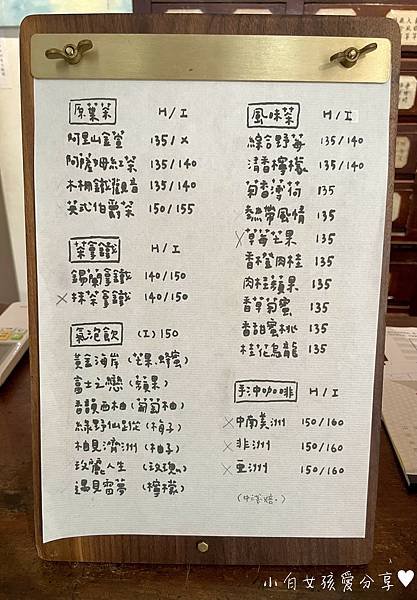 原葉茶 H/I
阿里山金萱 135/x
阿薩姆紅茶 135/140
木柵鐵觀音 135/140
英式伯爵茶 150/155
茶拿鐵 H/I
錫蘭拿鐵 140/150
x抹茶拿鐵 140/150
氣泡飲 (I)150
黃金海岸 (芒果.蜂蜜)
富士之戀 (蘋果)
香韻西柚 (葡萄柚)
綠野仙蹤 (梅子)
柚見濟洲 (柚子)
玫麗人生 (玫瑰)
遇見雷夢 (檸檬)
風味茶 H/I
綜合野莓 135/140
清香檸檬 135/140
菊香薄荷 135
熱帶風情 135
x草莓芒果 135
香橙肉桂 135
肉桂蘋果 135
香草菊蜜 135
香甜蜜桃 135
桂花烏龍 135
手沖咖啡 H/I
x中南美洲 150/160
x非洲 150/160
x亞洲 150/160
小白女孩愛分享♥